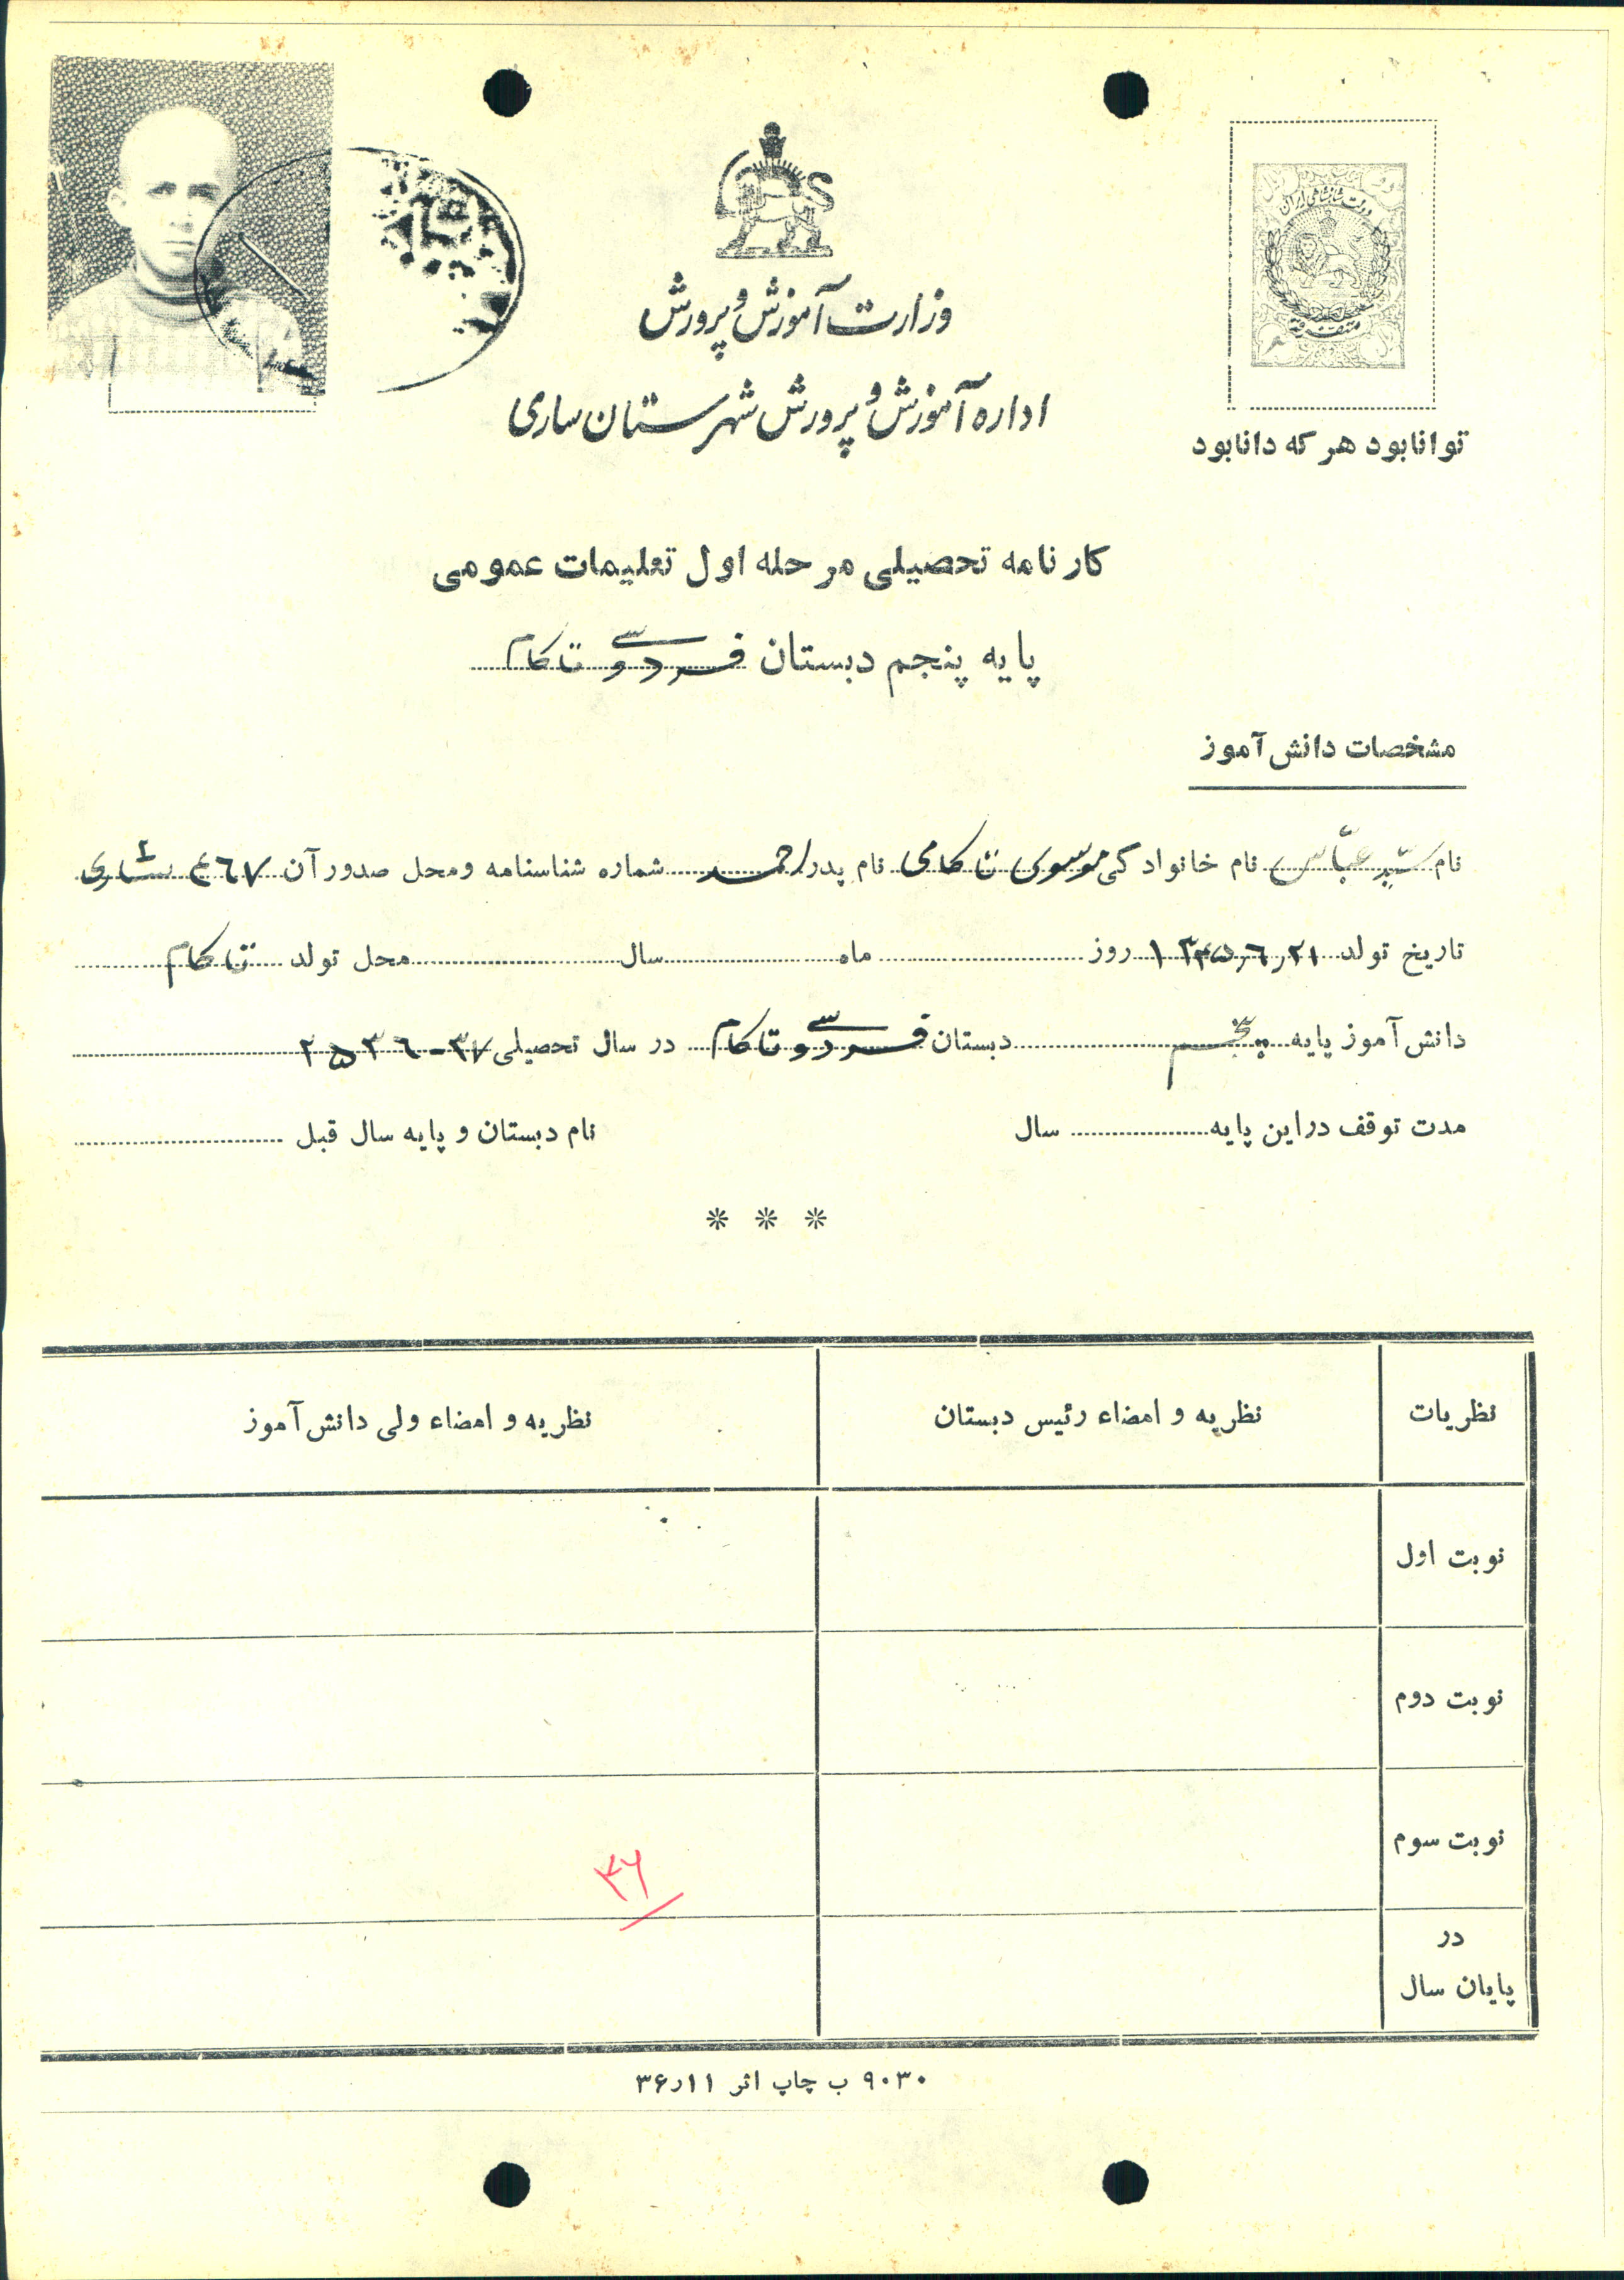 دولت شاهنشاهی ایران
متفرقه
وزارت آموزش و پرورش
اداره آموزش و پرورش شهرستان ساری
توانا بود هر که دانا بود
کارنامه تحصیلی مرحله اول تعلیمات عمومی
پایه پنجم دبستان فردوسی تاکام
مشخصات دانش آموز
نام سید عباس نام خانوادگی موسوی تاکامی نام پدر احمد شماره شناسنامه ومحل صدور آن ۴۶۷ ساری
تاریخ تولد ۱۳۴۵٫۶٫۲۱ روز ماه سال محل تولد تاکام
دانش آموز پایه پنجم دبستان فردوسی تاکام در سال تحصیلی ۳۷-۲۵۳۶
مدت توقف دراین پایه سال نام دبستان و پایه سال قبل
* * *
نظریات نظریه و امضاء رئیس دبستان نظریه و امضاء ولی دانش آموز
نوبت اول
نوبت دوم
نوبت سوم
۳۶
در
پایان سال
۹۰۳۰ ب چاپ اثر ۳۶٫۱۱